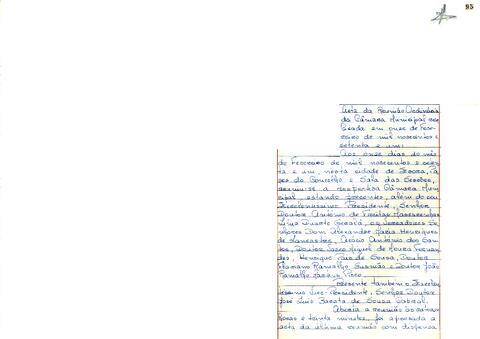 95
Acta da Reunião Ordinária
da Câmara Municipal rea
lizada em onze de Feve-
reiro de mil novecentos e
setenta e um:
Aos onze dias do mês
de Fevereiro de mil novecentos e seten
ta e um, nesta cidade de
do Concelho e Sala das Sessões,
reuniu-se a respectiva Câmara Muni
cipal, estando presentes, além do Ex
Presidente, Senhor
Doutor António de Freitas
Lima Duarte os Vereadores Se
nhores Dom Alexandre Henriques
de Lancastre, António dos San
tos, Doutor Miguel de Moura
des, Henrique de Sousa, Doutor
Ramalho e Doutor João
Ramalho
Presente também o
Vice-Presidente, Senhor Doutor
José Luis Barata de Sousa Cabral.
Aberta a reunião às
horas e trinta minutos, foi aprovada a
acta da última reunião com dispensa